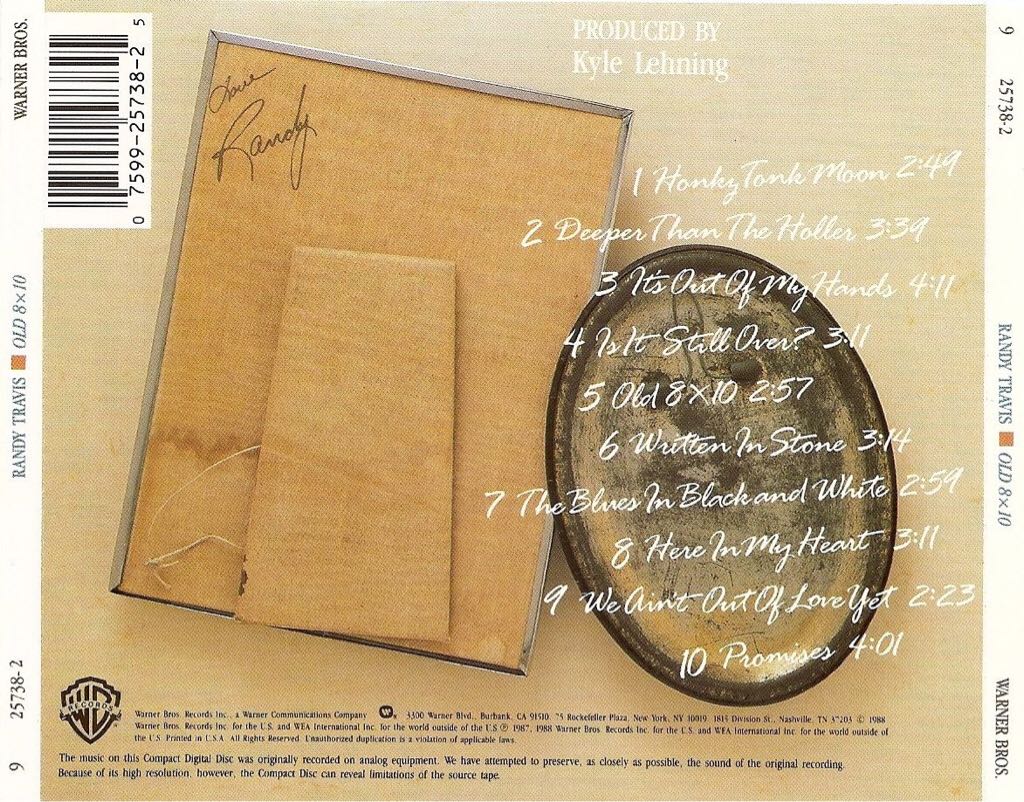 WARNER BROS.
RANDY TRAVIS OLD 8×10
9 25738-2
0 7599-25738-2 5
Love
Randy
PRODUCED BY
Kyle Lehning
1 Honky Tonk Moon 2:49
2 Deeper Than The Holler 3:39
3 It's Out Of My Hands 4:11
4 Is It Still Over? 3:11
5 Old 8×10 2:57
6 Written In Stone 3:14
7 The Blues In Black and White 2:59
8 Here In My Heart 3:11
9 We Ain't Out Of Love Yet 2:23
10 Promises 4:01
WB
RECORDS
Warner Bros. Records Inc., a Warner Communications Company 3300 Warner Blvd., Burbank, CA 91510 75 Rockefeller Plaza, New York, NY 10019 1815 Division St., Nashville, TN 37203 © 1988
Warner Bros. Records Inc. for the U.S. and WEA International Inc. for the world outside of the U.S. ℗ 1987, 1988 Warner Bros. Records Inc. for the U.S. and WEA International Inc. for the world outside of
the U.S. Printed in U.S.A. All Rights Reserved. Unauthorized duplication is a violation of applicable laws.
The music on this Compact Digital Disc was originally recorded on analog equipment. We have attempted to preserve, as closely as possible, the sound of the original recording.
Because of its high resolution, however, the Compact Disc can reveal limitations of the source tape.
9 25738-2
RANDY TRAVIS OLD 8×10
WARNER BROS.